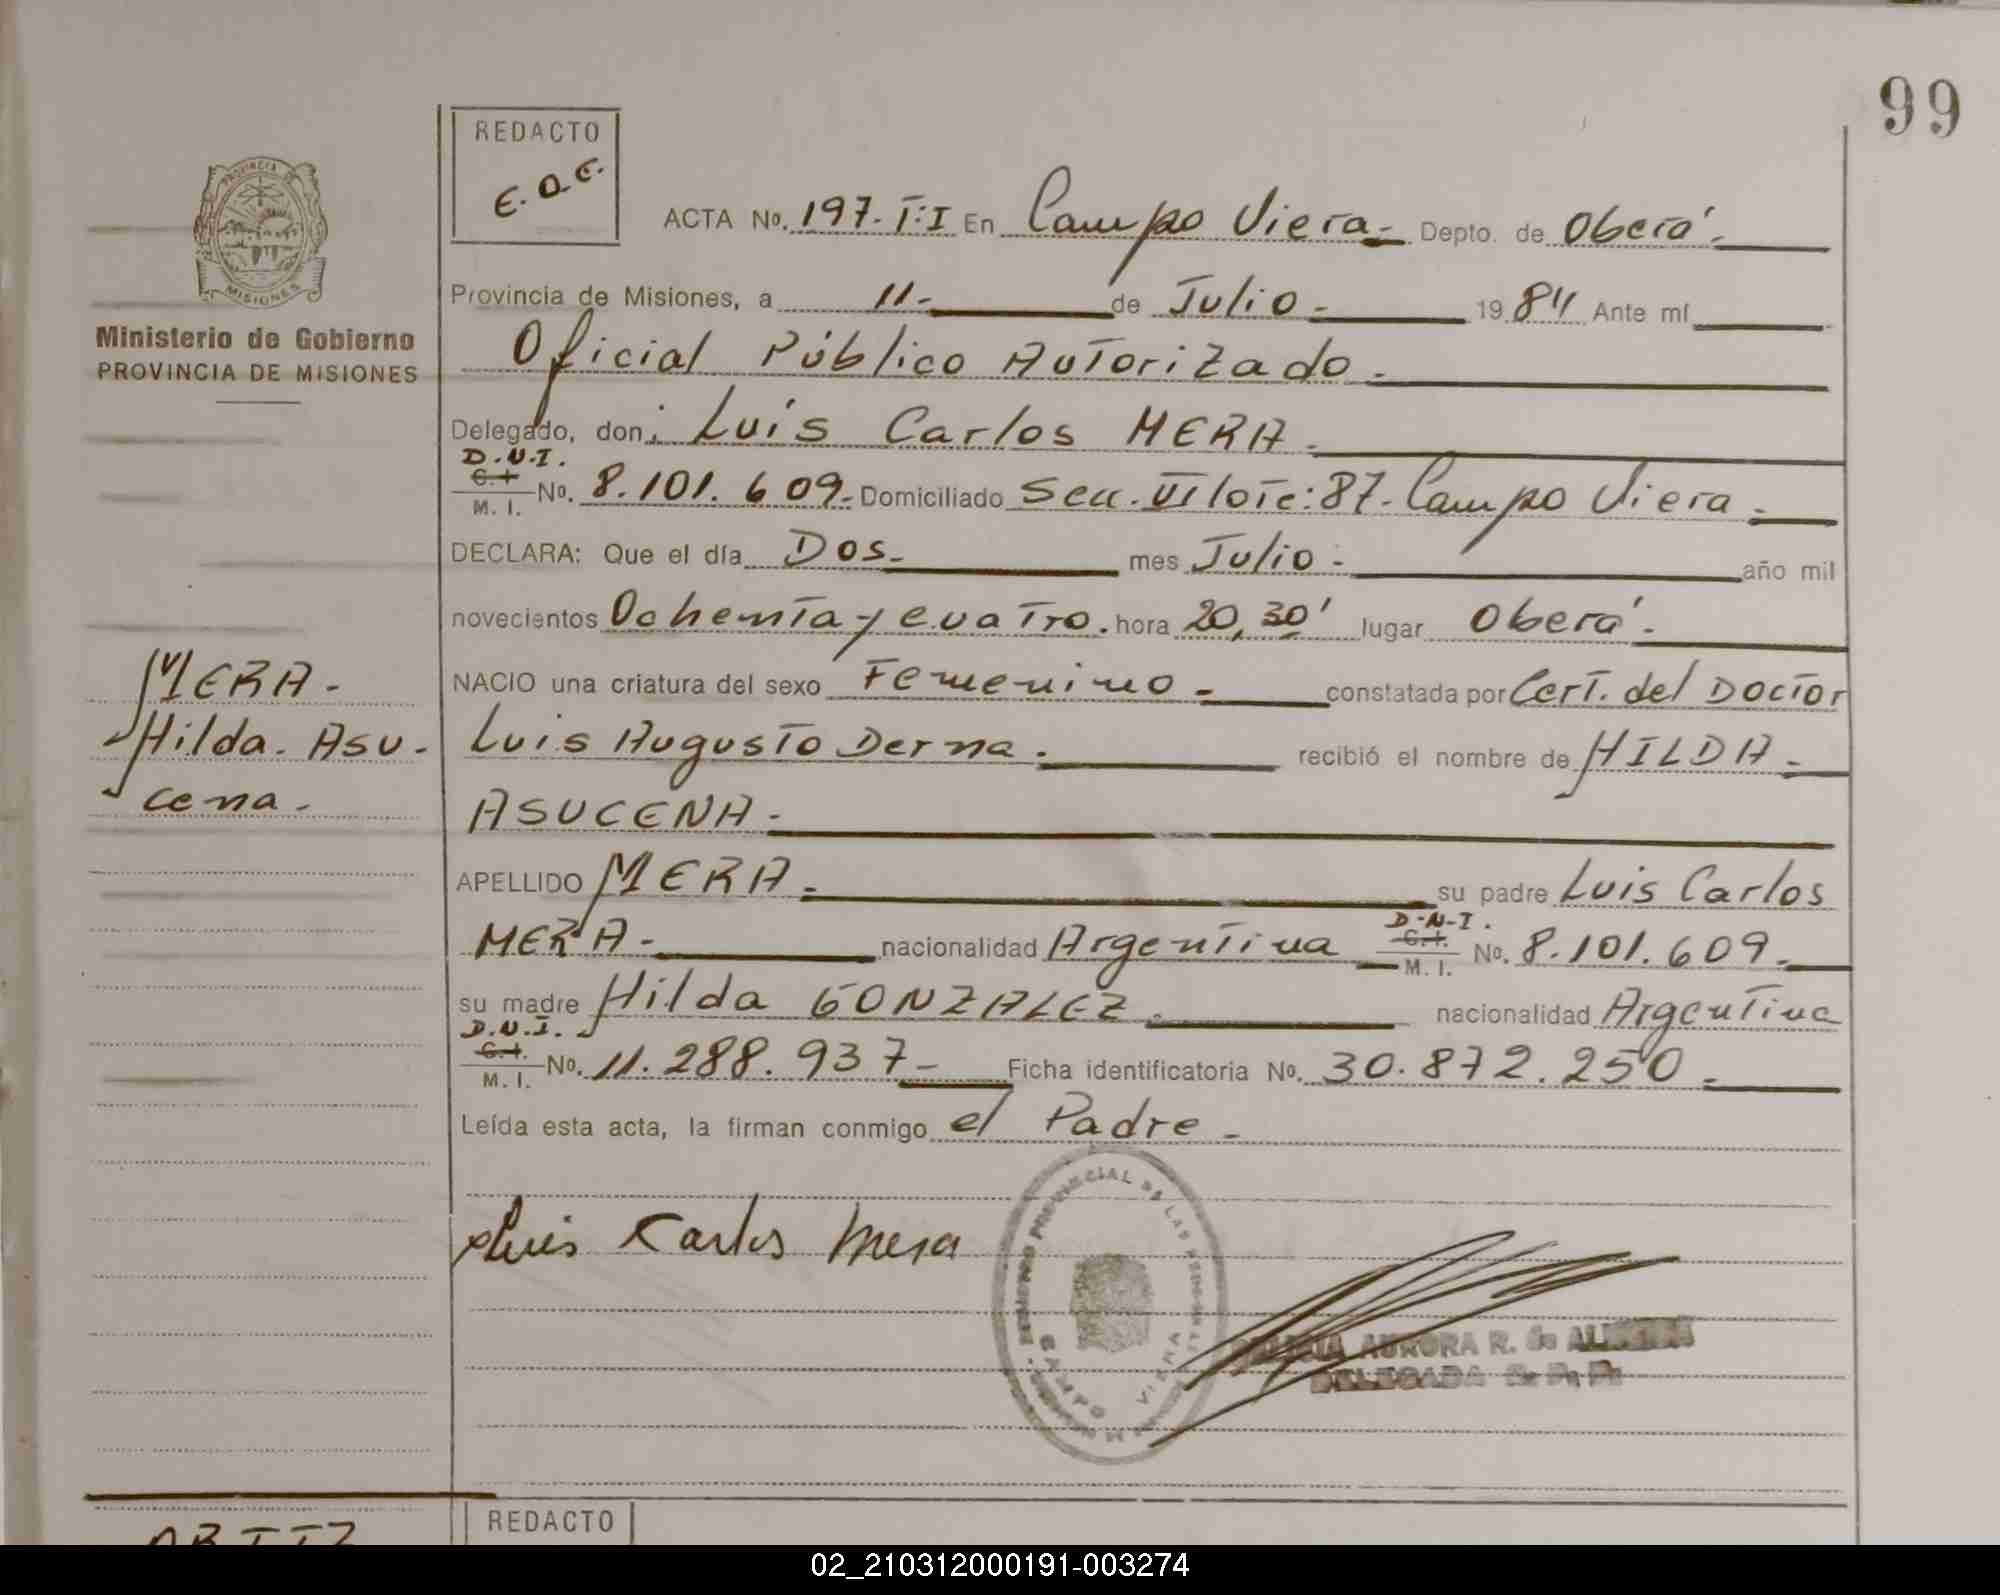 99
REDACTO
E.O.E.
ACTA No. 197.T:I En Campo Viera.- Depto. de Oberá.-
Provincia de Misiones, a 11.- de Julio.- 1984 Ante mí
Oficial Público Autorizado.-
Delegado, don: Luis Carlos MERA.-
D.N.I.
C.I. M. I. No. 8.101.609.- Domiciliado Secc. VI lote: 87- Campo Viera.-
DECLARA: Que el día Dos.- mes Julio.- año mil
novecientos Ochenta y cuatro. hora 20,30' lugar Oberá.-
NACIO una criatura del sexo Femenino.- constatada por Cert. del Doctor
Luis Augusto Derna.- recibió el nombre de HILDA.-
ASUCENA.-
APELLIDO MERA.- su padre Luis Carlos
MERA.- nacionalidad Argentina D.N.I. C.I. M. I. No. 8.101.609.-
su madre Hilda GONZALEZ.- nacionalidad Argentina
D.N.I.
C.I. M. I. No. 11.288.937- Ficha identificatoria No. 30.872.250.-
Leída esta acta, la firman conmigo el Padre.-
Luis Karlos Mera
PROVINCIAL DE LAS
CAMPO VIERA
AURORA R. de
DELEGADA R. P. P.
PROVINCIA DE
MISIONES
Ministerio de Gobierno
PROVINCIA DE MISIONES
MERA.-
Hilda. Asu-
cena.-
REDACTO
02_210312000191-003274